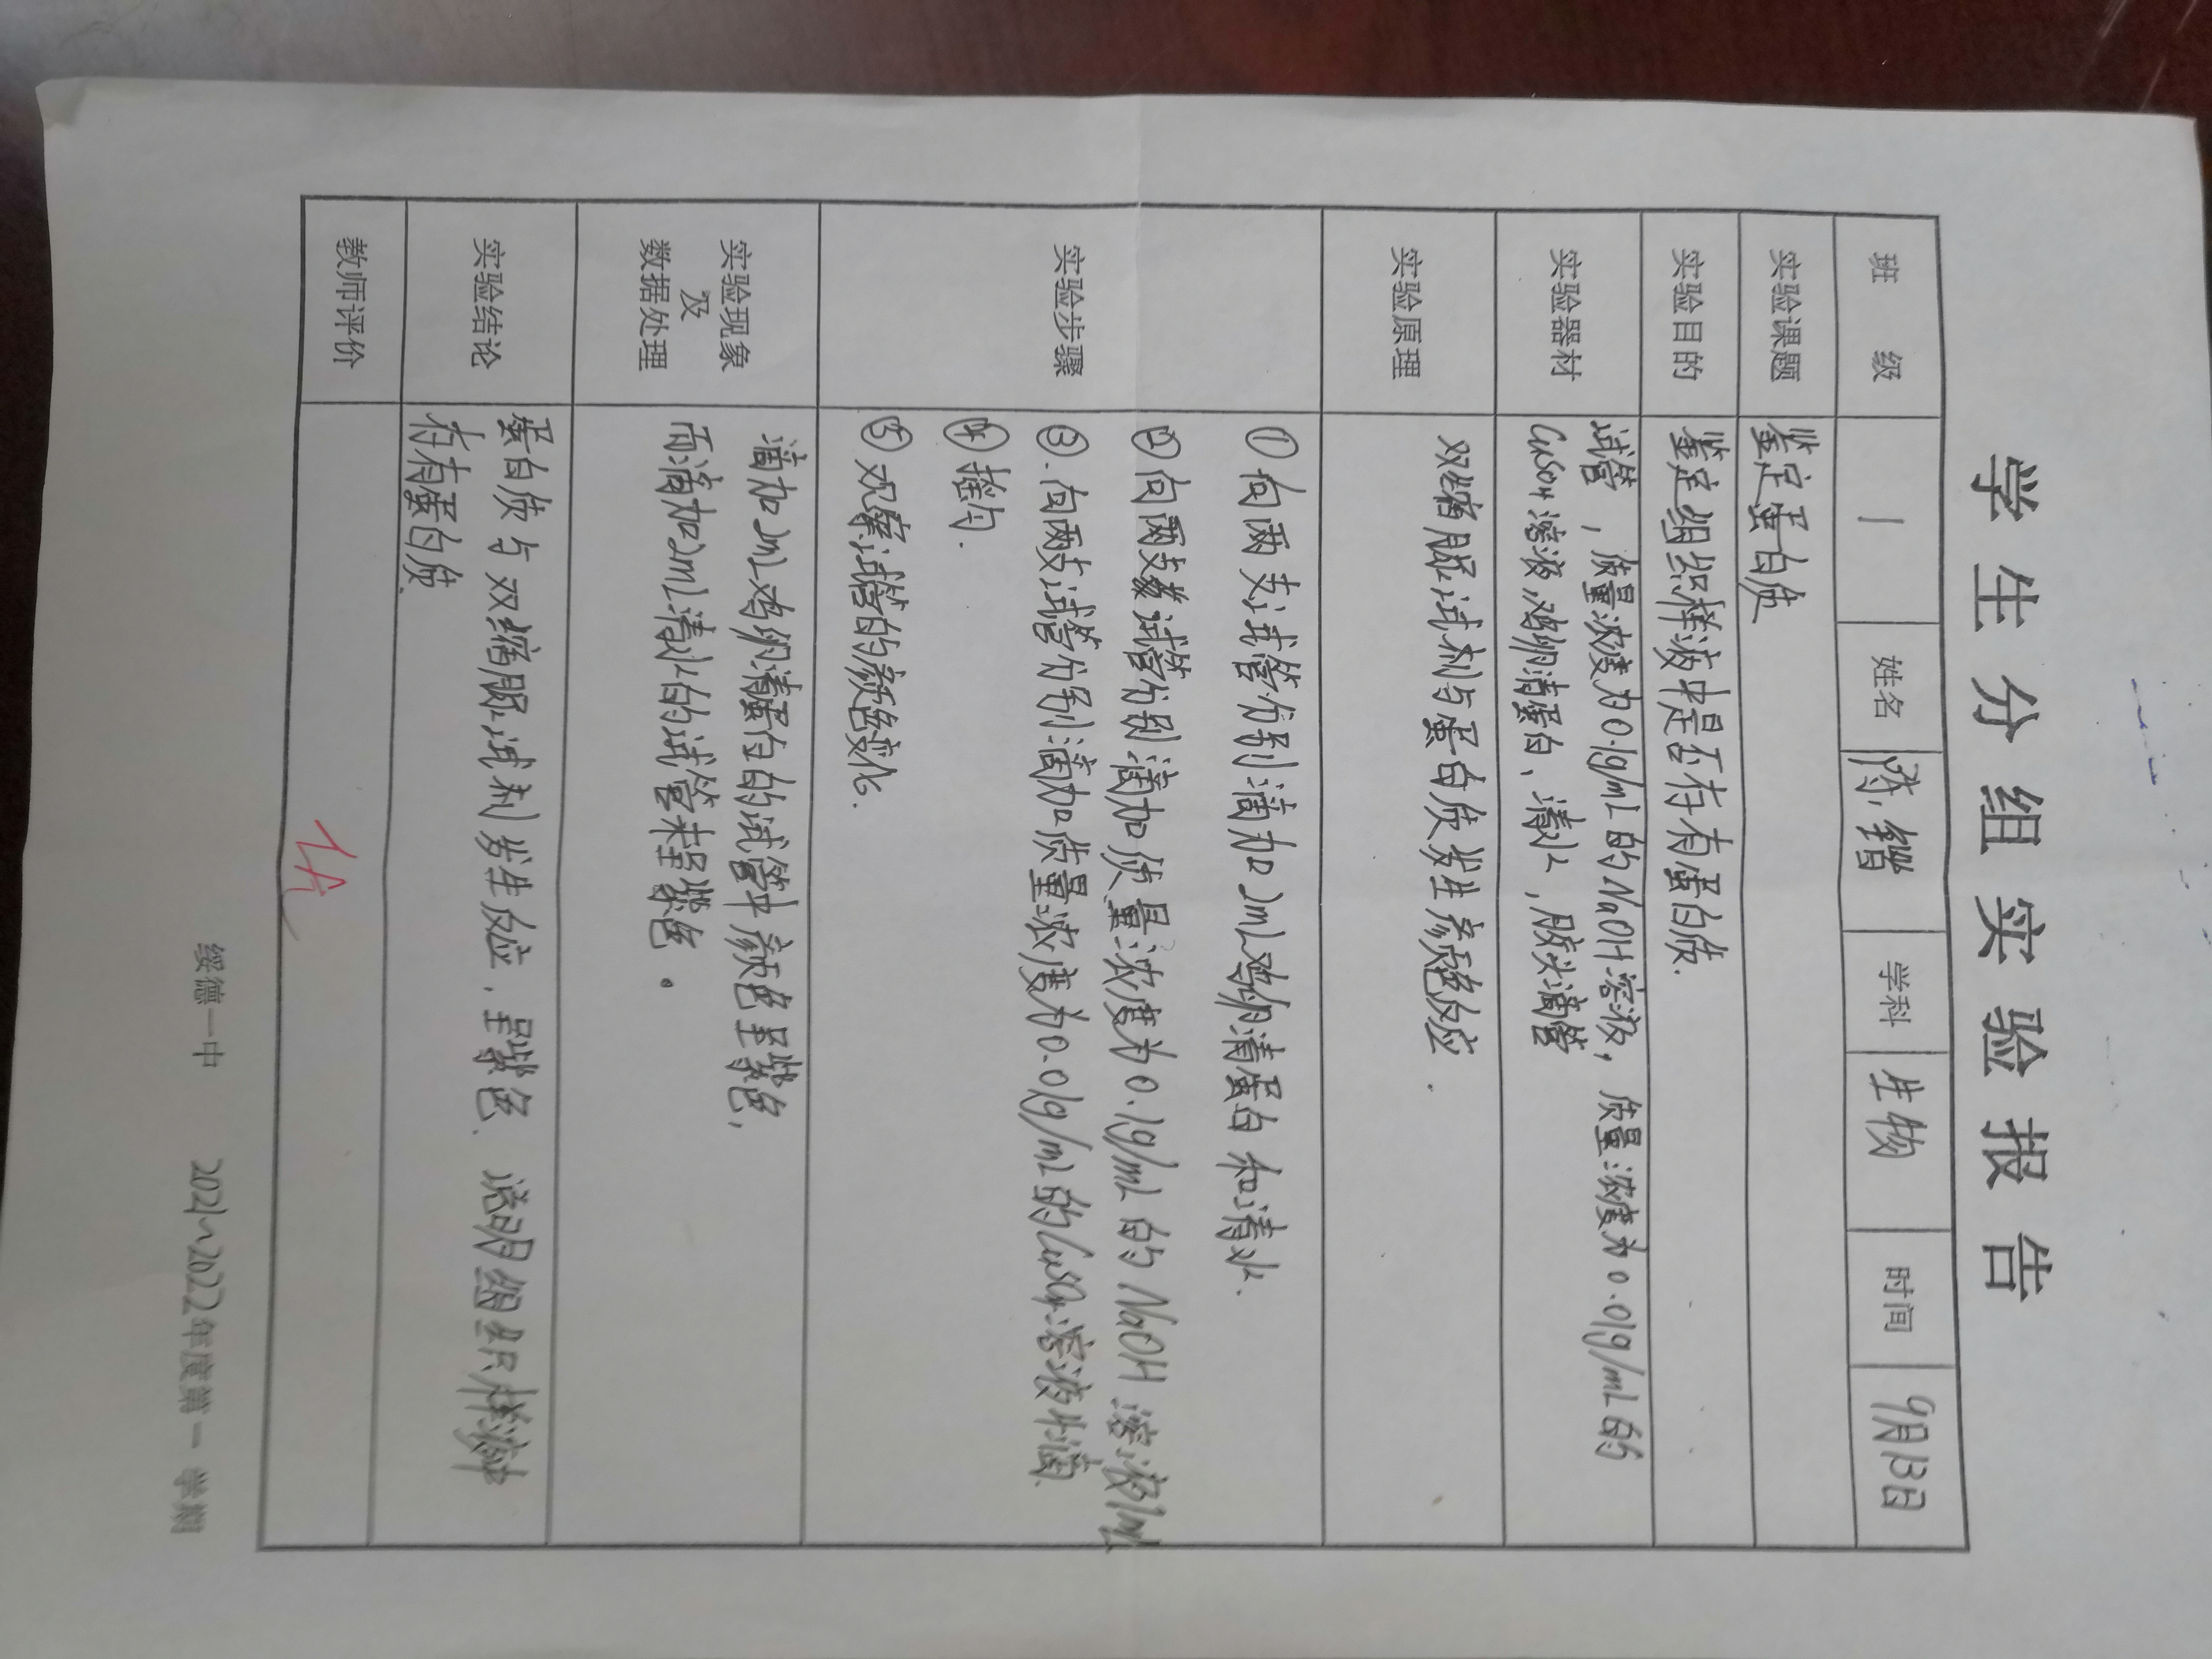 学生分组实验报告
班 级 1 姓名 学科 生物 时间 9月13日
实验课题 鉴定蛋白质
实验目的 鉴定组织样液中是否存有蛋白质.
实验器材
试管，质量浓度为0.1g/mL的NaOH溶液，质量浓度为0.01g/mL的
CuSO4溶液，鸡卵清蛋白、清水，胶头滴管
实验原理 双缩脲试剂与蛋白质发生颜色反应.
实验步骤
①向两支试管分别滴加2mL鸡卵清蛋白和清水.
②向两支试管分别滴加质量浓度为0.1g/mL的NaOH溶液1mL
③.向两支试管分别滴加质量浓度为0.01g/mL的CuSO4溶液4滴.
④摇匀.
⑤观察试管的颜色变化.
实验现象
及
数据处理
滴加2mL鸡卵清蛋白的试管中颜色呈紫色,
而滴加2mL清水的试管未呈紫色。
实验结论
蛋白质与双缩脲试剂发生反应.呈紫色.说明组织样液中
存有蛋白质.
教师评价 优
绥德一中 2021~2022年度第一学期